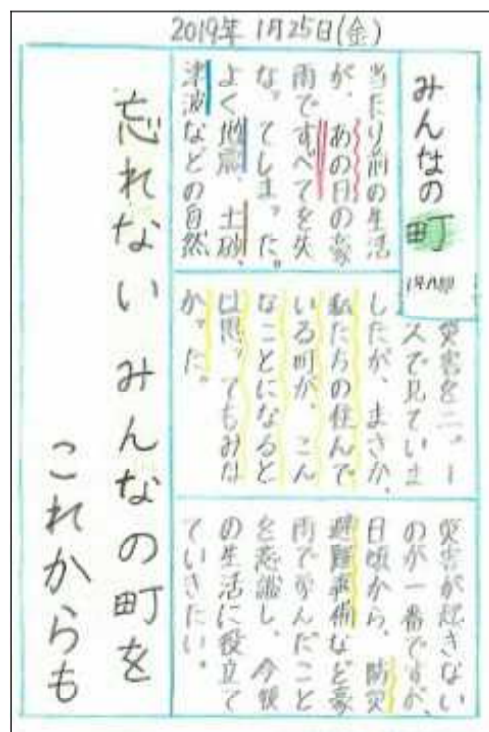 2019年 1月25日(金)
みんなの町
当たり前の生活
が、あの日の豪
雨ですべてを失
なってしまった。
よく地震、土砂、
津波などの自然
災害をニュー
スで見ていま
したが、まさか、
私たちの住んで
いる町が、こん
なことになると
は思ってもみな
かった。
災害が起きない
のが一番ですが、
日頃から、防災
避難準備など豪
雨で学んだこと
を意識し、今後
の生活に役立て
ていきたい。
忘れない みんなの町を
これからも